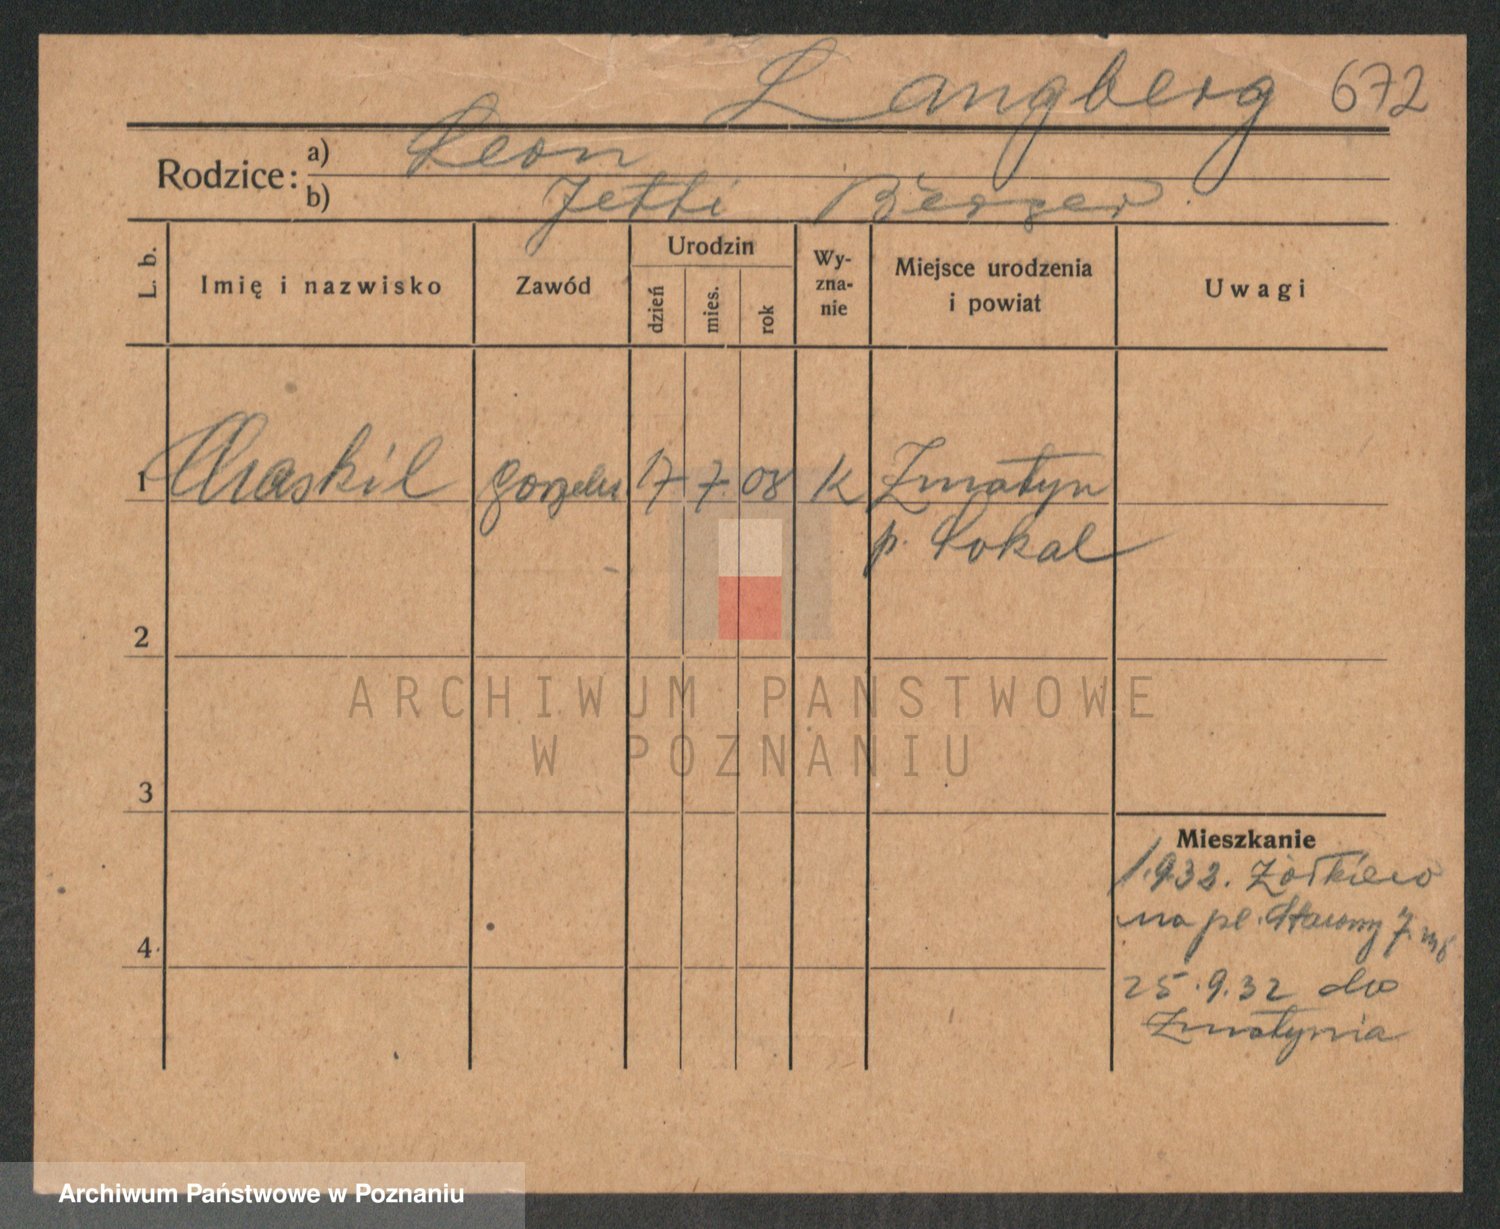 Langberg 672
Rodzice: a) Leon
b) Jetti Berger
L. b.
Imię i nazwisko
Zawód
Urodzin
dzień
mies.
rok
Wy-
zna-
nie
Miejsce urodzenia
i powiat
Uwagi
1 Chaskil 17 7. 08 K Zmatyn
p. Sokal
2
3
4
Mieszkanie
1.932. Żółkiew
na pl. 7
25.9.32 do
Zmatynia
ARCHIWUM PAŃSTWOWE
W POZNANIU
Archiwum Państwowe w Poznaniu